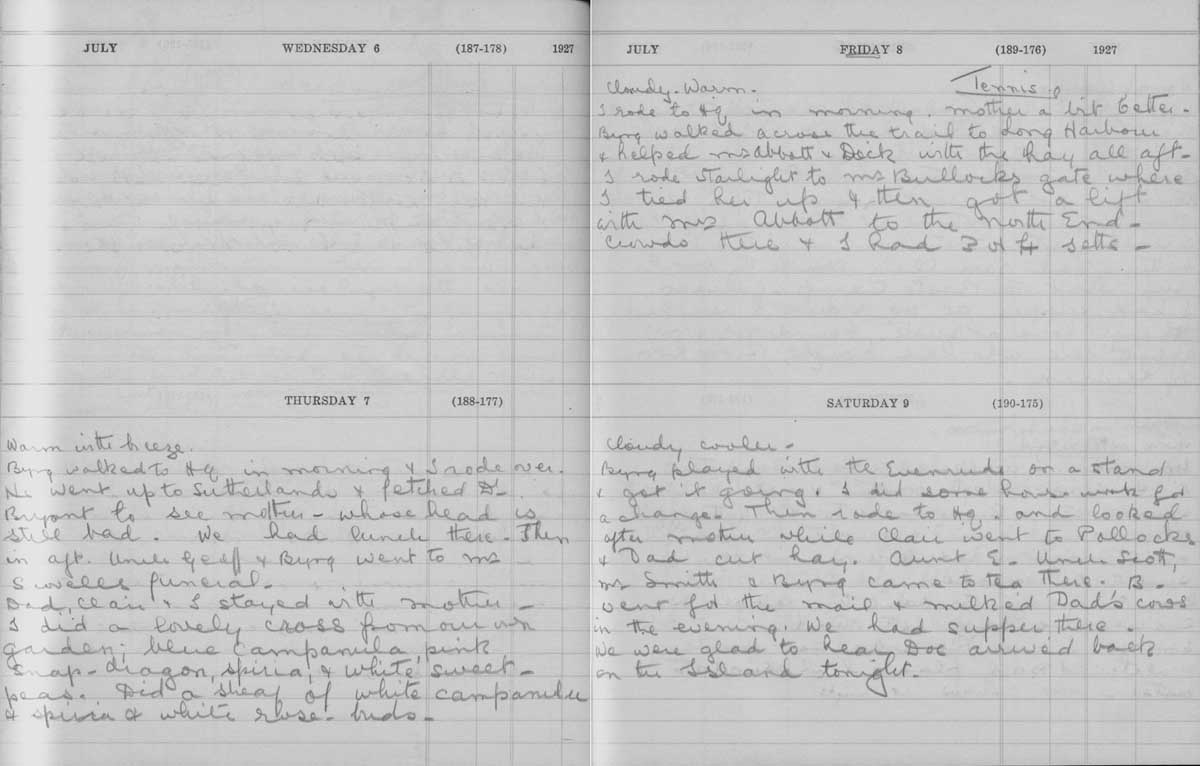 JULY WEDNESDAY 6 (187-178) 1927
THURSDAY 7 (188-177)
Warm with breeze.
Byng walked to Hq in morning & I rode over.
He went up to Sutherlands & fetched Dr
Bryant to see mother - whose head is
still bad. We had lunch there. Then
in aft. Uncle Geoff & Byng went to Ms
funeral-
Dad, Clair & I stayed with mother -
I did a lovely cross from our own
garden; blue campanula, pink
snap-dragon, spiria, & white sweet-
peas. Did a sheaf of white campanula
& spiria & white rose-buds-
JULY FRIDAY 8 (189-176) 1927
Cloudy. Warm. Tennis.
I rode to Hq in morning. mother a bit better.
Byng walked across the trail to Long Harbour
& helped Ms Abbott & Dock with the hay all aft-
I rode Starlight to Ms Bullocks gate where
I tied her up & then got a lift
with Mrs Abbott to the North End-
Crowds there & I had 3 or 4 setts -
SATURDAY 9 (190-175)
Cloudy cooler-
Byng played with the Evenrude on a stand
& got it going. I did some house work for
a change. Then rode to Hq. and looked
after mother while Clair went to Pollocks
& Dad cut hay. Aunt E- Uncle Scott,
Ms Smith & Byng came to tea there. B-
went for the mail & milked Dad's cows
in the evening. We had supper there.
We were glad to hear Doc arrived back
on the Island tonight.